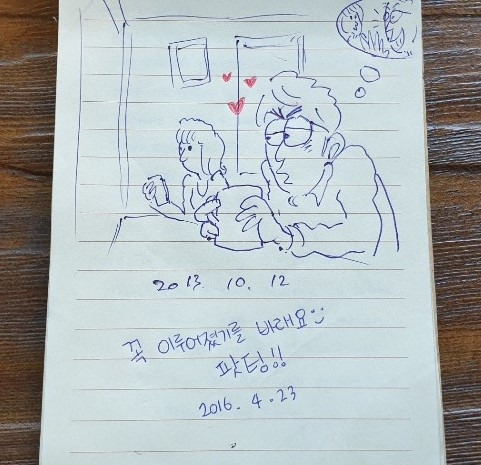 2013. 10. 12
꼭 이루어졌기를 바래요
팟팅!!
2016. 4. 23